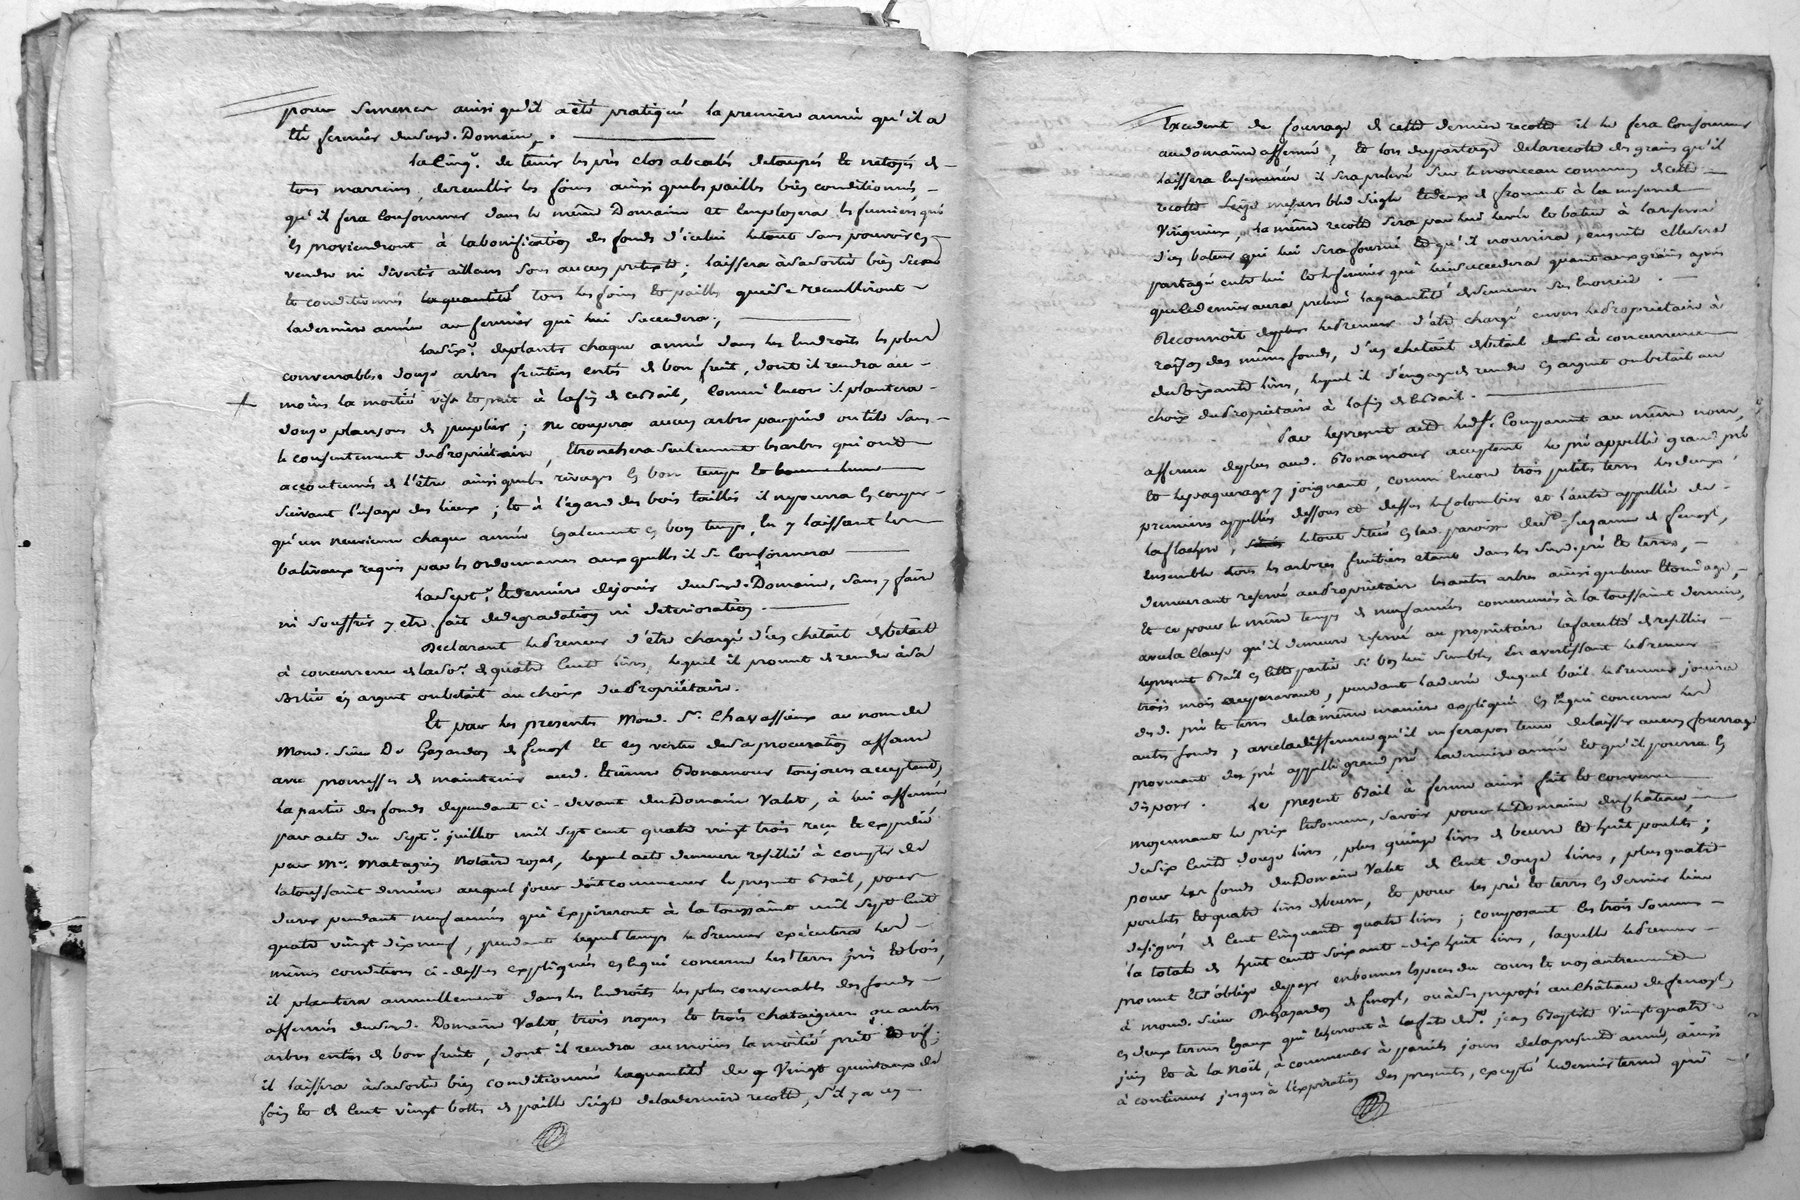 pour semence ainsi qu'il a été pratiqué la premiere année qu'il a
été fermier dudsusd. Domaine.
la Cinq.e de tenir les prés clos abealés détaupés et netoyés de
tous marreins, de receullir les foins ainsi que les pailles bien conditionnés,
qu'il fera consommer dans le même Domaine et employera les fumiers qui
en proviendront à la bonification des fonds d'icelui le tout sans pouvoir en
vendre ni divertir ailleurs sous aucun pretexte; laissera à sa sortie bien secs
et conditionnés la quantité tous les foins et pailles qui se receulliront
la derniere année au fermier qui lui succedera;
la Six.e de planter chaque année dans les endroits les plus
convenables douze arbres fruitiers entés de bon fruit, dont il rendra au
moins la moitié vifs et prit à la fin de ce bail, comme encore il plantera
douze plançons de peuplier; ne coupera aucun arbre par pied ou tête sans
le consentement du Propriétaire, Etronchera seulement les arbres qui ont
accoutumés de l'être ainsi que les rivages en bon temps et bonne lune
suivant l'usage des lieux; et à l'égard des bois taillis il n'y pourra en couper
qu'un neuvieme chaque année également en bon temps, en y laissant les
baliveaux requis par les ordonnances auxquelles il se conformera
la Sept.e et derniere de jouir dudsusd. Domaine, sans y faire
ni souffrir y etre fait de degradation ni deterioration.
Declarant le Preneur d'être chargé d'un cheteil de betail
à concurrence de la So.e de quatre cents livres, lequel il promet de rendre à sa
sortie en argent ou betail au choix du Propriétaire.
Et par les presentes Moud. S.r Chavassieux au nom de
Moud. sieur De Gazandon de fenoyl et en vertu de sa procuration afferme
avec promesses de maintenir aud. Etienne Bonamour toujours acceptant,
la partie des fonds dependant ci-devant du Domaine Valet, à lui affermée
par acte du Sept.e juillet mil sept cent quatre vingt trois reçu et expedié
par M.e Matagrin Notaire royal, lequel acte demeure resillié à compter de
la toussaint derniere auquel jour doit commencer le present Bail, pour
durer pendant neuf années qui expireront à la toussaint mil sept cent
quatre vingt dix neuf, pendant lequel temps le Preneur executera les
mêmes conditions ci-dessus expliquées en ce qui concerne les terres prés et bois,
il plantera annuellement dans les endroits les plus convenables des fonds
affermés dudsusd. Domaine Valet trois noyers et trois chataigners ou autres
arbres entés de bon fruit, dont il rendra au moins la moitié prit et vif;
il laissera à sa sortie bien conditionnés la quantité de vingt quintaux de
foin et de cent vingt bottes de paille seigle de la derniere recolte, s'il y a un
Excedent de fourrage de cette derniere recolte il le fera consommer
au domaine affermé, et lors du partage de la recolte des grains qu'il
laissera ensemencée il sera prelevé sur le monceau commun de cette
recolte Seize mesures bled seigle et deux de froment à la mesure
Virignieux, la même recolte sera par lui levée et batue à la reserve
d'un bateur qui lui sera fourni et qu'il nourrira, ensuite elle sera
partagée entre lui et le fermier qui lui succedera quant aux grains après
que le dernier aura prelevé la quantité de semence sus enoncée.
Reconnoit de plus le Preneur d'être chargé envers le Propriétaire à
raison des mêmes fonds, d'un cheteil de betail à concurrence
de Soixante livres, lequel il s'engage de rendre en argent ou betail au
choix du Propriétaire à la fin de ce bail.
Par le present acte led. S.r Comparant au même nom,
afferme de plus aud. Bonamour acceptant le pré appellé grand pré
et le paquerage y joignant, comme encore trois petites terres les deux
premieres appellées dessous et dessus le Colombier et l'autre appellée de
la flachere, le tout situé en lad. paroisse de S.te Suzanne de fenoyl,
ensemble tous les arbres fruitiers etant dans les Susd. pré et terres,
demeurant reservé au Propriétaire les autres arbres ainsi que leur Etondage,
Et ce pour le même temps de neuf années commencées à la toussaint derniere,
avec la clause qu'il demeure reservé au propriétaire la faculté de resillier
le present Bail en cette partie si bon lui semble, En avertissant le Preneur
trois mois auparavant, pendant la durée duquel bail le Preneur jouira
desd. pré et terres de la même maniere expliquée en ce qui concerne les
autres fonds, avec la difference qu'il ne sera pas tenu de laisser aucun fourrage
provenant du pré appellé grand pré la derniere année et qu'il pourra en
disposer. Le present Bail à ferme ainsi fait et convenu
moyennant le prix et Somme, savoir pour le Domaine du château,
de Six Cents douze livres, plus quinze livres de beurre et huit poulets;
pour les fonds du Domaine Valet de Cent douze livres, plus quatre
poulets et quatre livres de beurre, et pour les pré et terres en dernier lieu
designés de Cent Cinquante quatre livres; composant les trois sommes
la totale de huit cents soixante-dix huit livres, laquelle le Preneur
promet et s'oblige de payer en bonnes Especes du cours et non autrement
à moud. sieur De Gazandon de fenoyl, ou à ses preposés au Château de fenoyl,
en deux termes Egaux qui echerront à la fête de S.t jean Baptiste Vingt quatre
juin et à la Noël, à commencer à pareils jours de la presente année, ainsi
à continuer jusqu'à l'expiration des presentes, excepté le dernier terme qui